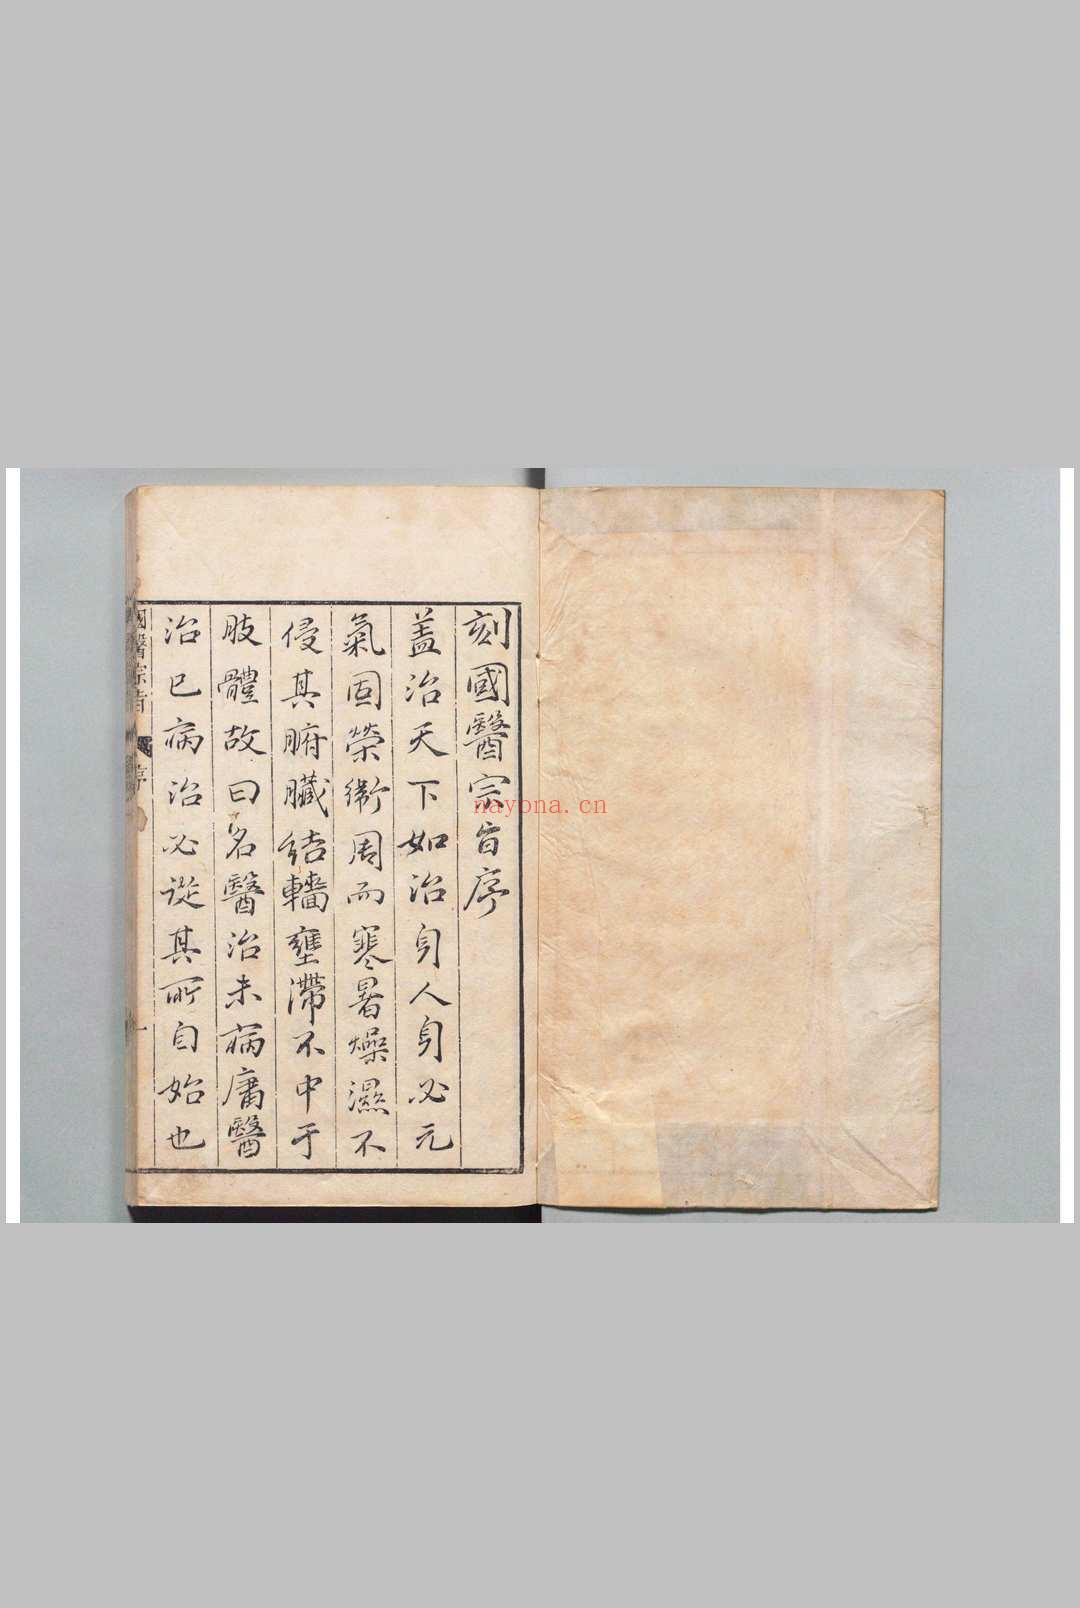 刻國醫宗旨序
蓋治天下如治身人身必元
氣固榮衛周而寒暑燥濕不
侵其腑臟結轖壅滯不中于
肢體故曰名醫治未病庸醫
治已病治必從其所自始也
國醫宗旨
序
一
nayona.cn